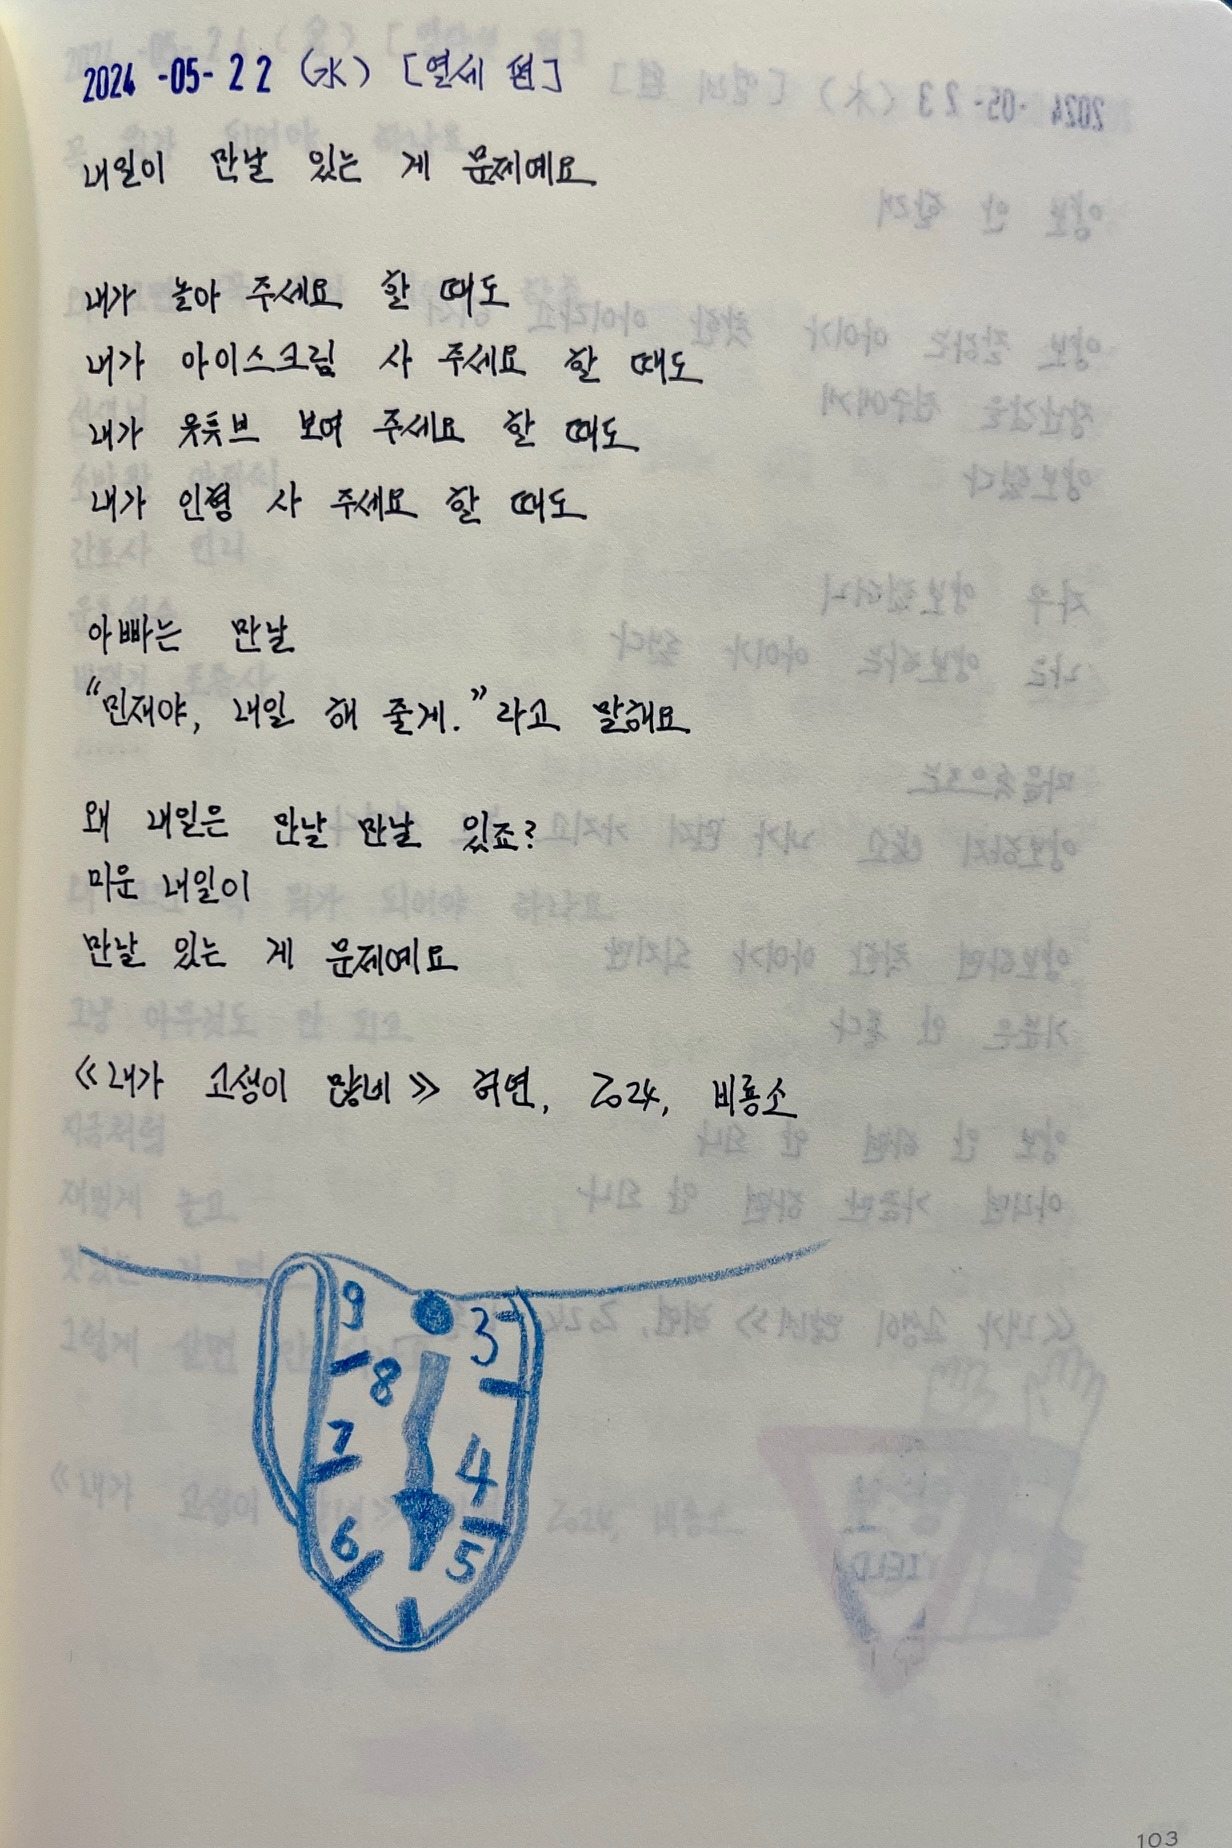 2024-05-22 (水) [열세 편]
내일이 만날 있는 게 문제예요
내가 놀아 주세요 할 때도
내가 아이스크림 사 주세요 할 때도
내가 유튜브 보여 주세요 할 때도
내가 인형 사 주세요 할 때도
아빠는 만날
“민재야, 내일 해 줄게.”라고 말해요
왜 내일은 만날 만날 있죠?
미운 내일이
만날 있는 게 문제예요
《내가 고생이 많네》 허연, 2024, 비룡소
9 3
8
7 4
6 5
103